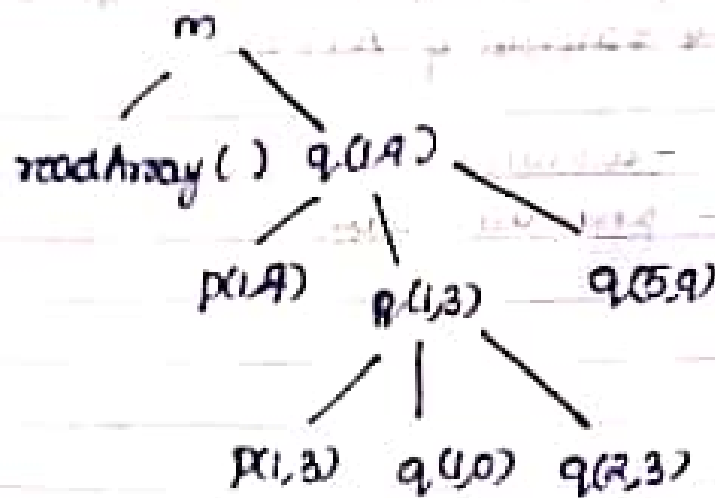 m
readArray() q(1,9)
p(1,9) q(1,3) q(5,9)
p(1,3) q(1,0) q(2,3)